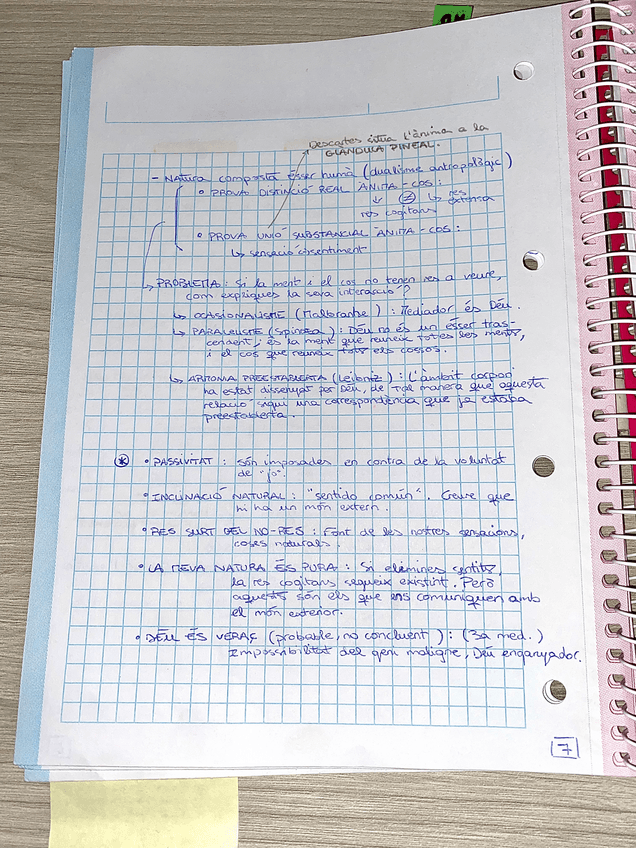 Descartes situa l'ànima a la
GLÀNDULA PINEAL.
- Natura composta ésser humà (dualisme antropològic)
• PROVA DISTINCIÓ REAL ÀNIMA-COS:
↓ ≠ ↳ res
extensa
res cogitans
• PROVA UNIÓ SUBSTANCIAL ÀNIMA-COS:
↳ sensació i sentiment
↳ PROBLEMA: Si la ment i el cos no tenen res a veure,
com expliques la seva interacció?
↳ OCASIONALISTE (Malbranbe): Mediador és Déu.
↳ PARALELISTE (Spinoza): Déu no és un ésser tras-
cennent, és la ment que reuneix totes les ments,
i el cos que reuneix tots els cossos.
↳ ARMONIA PREESTABLERTA (Leibniz): L'àmbit corpori
ha estat dissenyat per Déu, de tal manera que aquesta
relació sigui una correspondència que ja estaba
preestablerta.
* • PASSIVITAT: són imposades en contra de la voluntat
de "jo".
• INCLINACIÓ NATURAL: "sentido común". Creure que
hi ha un món extern.
• RES SURT DEL NO-RES: Font de les nostres sensacions,
coses naturals.
• LA MEVA NATURA ÉS PURA: Si elimines sentits,
la res cogitans segueix existint. Però
aquests són els que ens comuniquen amb
el món exterior.
• DÉU ÉS VERAÇ (probable, no concluent): (3a med.)
Impossibilitat del geni maligne, Déu enganyador.
7